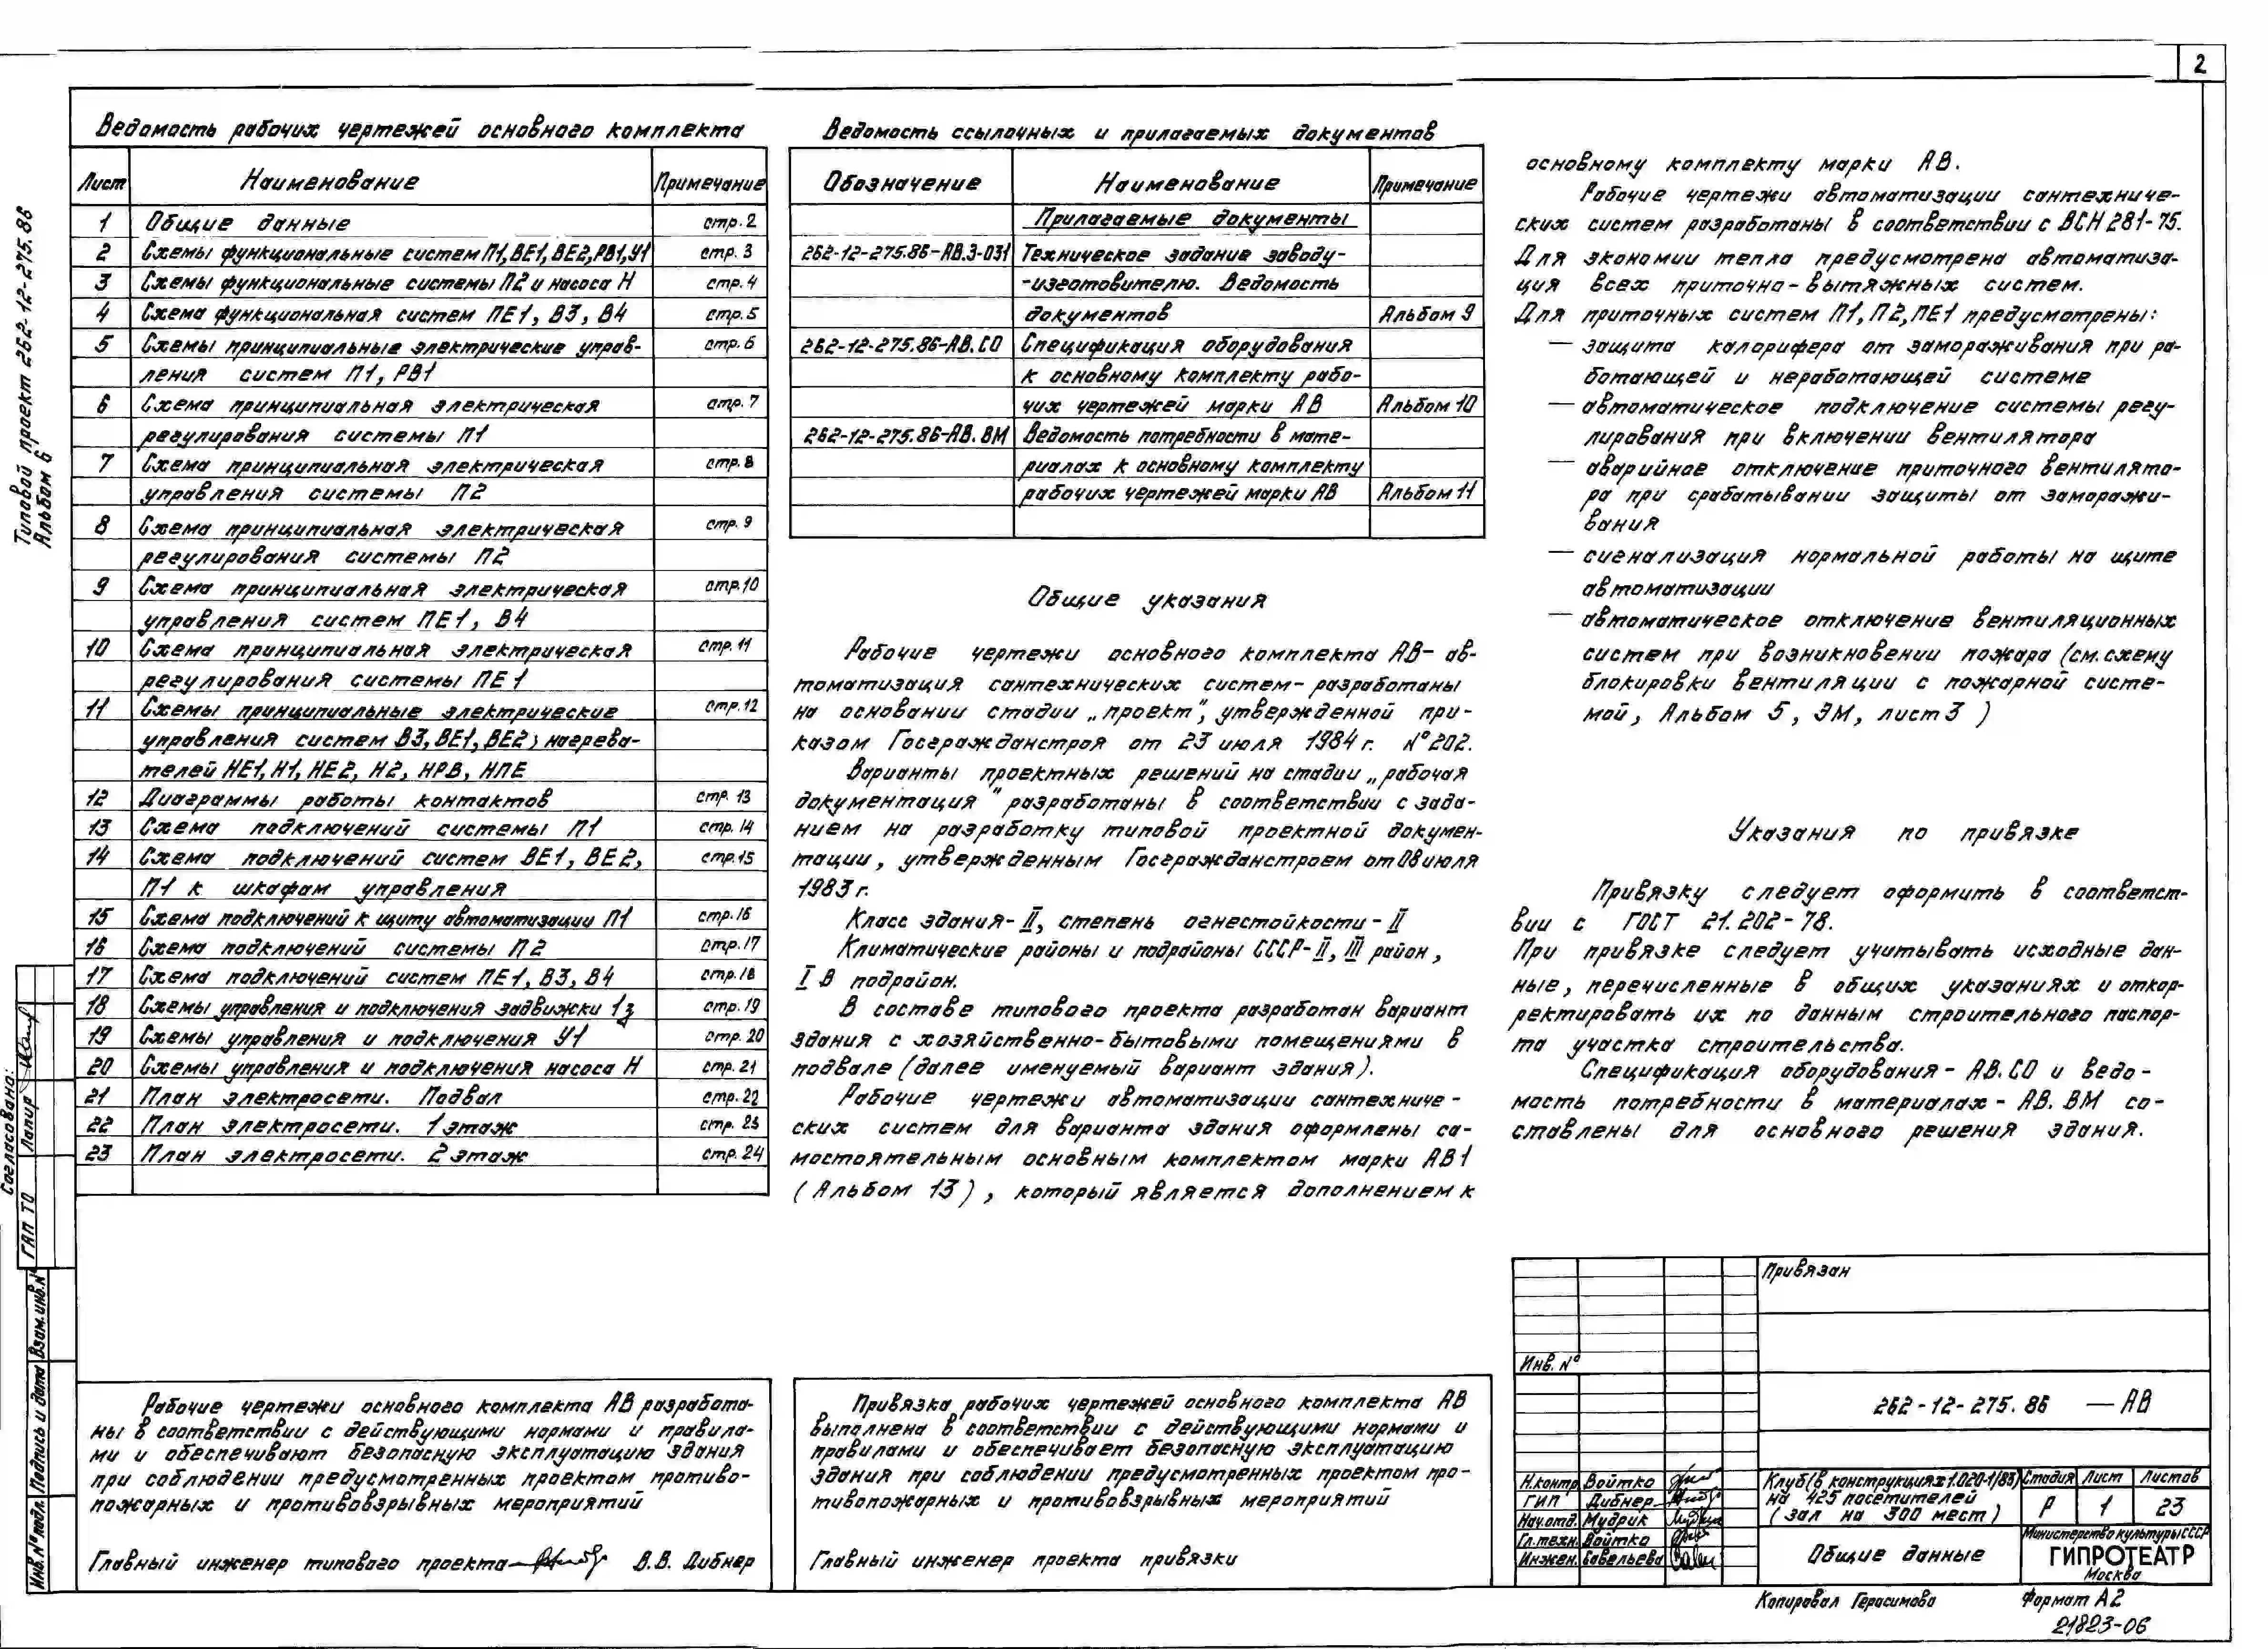 2
Типовой проект 262-12-275.86
Альбом 6
Ведомость рабочих чертежей основного комплекта
Лист Наименование Примечание
1 Общие данные стр. 2
2 Схемы функциональные систем П1, ВЕ1, ВЕ2, РВ1, У1 стр. 3
3 Схемы функциональные системы П2 и насоса Н стр. 4
4 Схема функциональная систем ПЕ1, В3, В4 стр. 5
5 Схемы принципиальные электрические управ- стр. 6
ления систем П1, РВ1
6 Схема принципиальная электрическая стр. 7
регулирования системы П1
7 Схема принципиальная электрическая стр. 8
управления системы П2
8 Схема принципиальная электрическая стр. 9
регулирования системы П2
9 Схема принципиальная электрическая стр. 10
управления систем ПЕ1, В4
10 Схема принципиальная электрическая стр. 11
регулирования системы ПЕ1
11 Схемы принципиальные электрические стр. 12
управления систем В3, ВЕ1, ВЕ2; нагрева-
телей НЕ1, Н1, НЕ2, Н2, НРВ, НПЕ
12 Диаграммы работы контактов стр. 13
13 Схема подключений системы П1 стр. 14
14 Схема подключений систем ВЕ1, ВЕ2, стр. 15
П1 к шкафам управления
15 Схема подключений к щиту автоматизации П1 стр. 16
16 Схема подключений системы П2 стр. 17
17 Схема подключений систем ПЕ1, В3, В4 стр. 18
18 Схемы управления и подключения задвижки 1з стр. 19
19 Схемы управления и подключения У1 стр. 20
20 Схемы управления и подключения насоса Н стр. 21
21 План электросети. Подвал стр. 22
22 План электросети. 1 этаж стр. 23
23 План электросети. 2 этаж стр. 24
Ведомость ссылочных и прилагаемых документов
Обозначение Наименование Примечание
Прилагаемые документы
262-12-275.86-АВ.З-031 Техническое задание заводу-
-изготовителю. Ведомость
документов Альбом 9
262-12-275.86-АВ.СО Спецификация оборудования
к основному комплекту рабо-
чих чертежей марки АВ Альбом 10
262-12-275.86-АВ.ВМ Ведомость потребности в мате-
риалах к основному комплекту
рабочих чертежей марки АВ Альбом 11
Общие указания
Рабочие чертежи основного комплекта АВ- ав-
томатизация сантехнических систем- разработаны
на основании стадии „проект", утвержденной при-
казом Госгражданстроя от 23 июля 1984 г. №202.
Варианты проектных решений на стадии „рабочая
документация" разработаны в соответствии с зада-
нием на разработку типовой проектной докумен-
тации, утвержденным Госгражданстроем от 08 июля
1983 г.
Класс здания- II, степень огнестойкости- II
Климатические районы и подрайоны СССР- II, III район,
I В подрайон.
В составе типового проекта разработан вариант
здания с хозяйственно-бытовыми помещениями в
подвале (далее именуемый вариант здания).
Рабочие чертежи автоматизации сантехниче-
ских систем для варианта здания оформлены са-
мостоятельным основным комплектом марки АВ1
(Альбом 13), который является дополнением к
основному комплекту марки АВ.
Рабочие чертежи автоматизации сантехниче-
ских систем разработаны в соответствии с ВСН 281-75.
Для экономии тепла предусмотрена автоматиза-
ция всех приточно-вытяжных систем.
Для приточных систем П1, П2, ПЕ1 предусмотрены:
— защита калорифера от замораживания при ра-
ботающей и неработающей системе
— автоматическое подключение системы регу-
лирования при включении вентилятора
— аварийное отключение приточного вентилято-
ра при срабатывании защиты от заморажи-
вания
— сигнализация нормальной работы на щите
автоматизации
— автоматическое отключение вентиляционных
систем при возникновении пожара (см. схему
блокировки вентиляции с пожарной систе-
мой, Альбом 5, ЭМ, лист 3)
Указания по привязке
Привязку следует оформить в соответст-
вии с ГОСТ 21.202-78.
При привязке следует учитывать исходные дан-
ные, перечисленные в общих указаниях и откор-
ректировать их по данным строительного паспор-
та участка строительства.
Спецификация оборудования- АВ.СО и ведо-
мость потребности в материалах- АВ.ВМ со-
ставлены для основного решения здания.
Согласовано:
ГАП ТО Лапир
Взам. инв. №
Подпись и дата
Инв. № подл.
Рабочие чертежи основного комплекта АВ разработа-
ны в соответствии с действующими нормами и правила-
ми и обеспечивают безопасную эксплуатацию здания
при соблюдении предусмотренных проектом противо-
пожарных и противовзрывных мероприятий
Главный инженер типового проекта В.В. Дибнер
Привязка рабочих чертежей основного комплекта АВ
выполнена в соответствии с действующими нормами и
правилами и обеспечивает безопасную эксплуатацию
здания при соблюдении предусмотренных проектом про-
тивопожарных и противовзрывных мероприятий
Главный инженер проекта привязки
Привязан
Инв. №
262-12-275.86 — АВ
Н.контр. Войтко
ГИП Дибнер
Нач.отд. Мудрик
Гл.техн. Войтко
Инжен. Савельева
Клуб (в конструкциях 1.020-1/83)
на 425 посетителей
(зал на 300 мест)
Стадия Лист Листов
Р 1 23
Общие данные
Министерство культуры СССР
ГИПРОТЕАТР
Москва
Копировал Герасимова Формат А2
21823-06